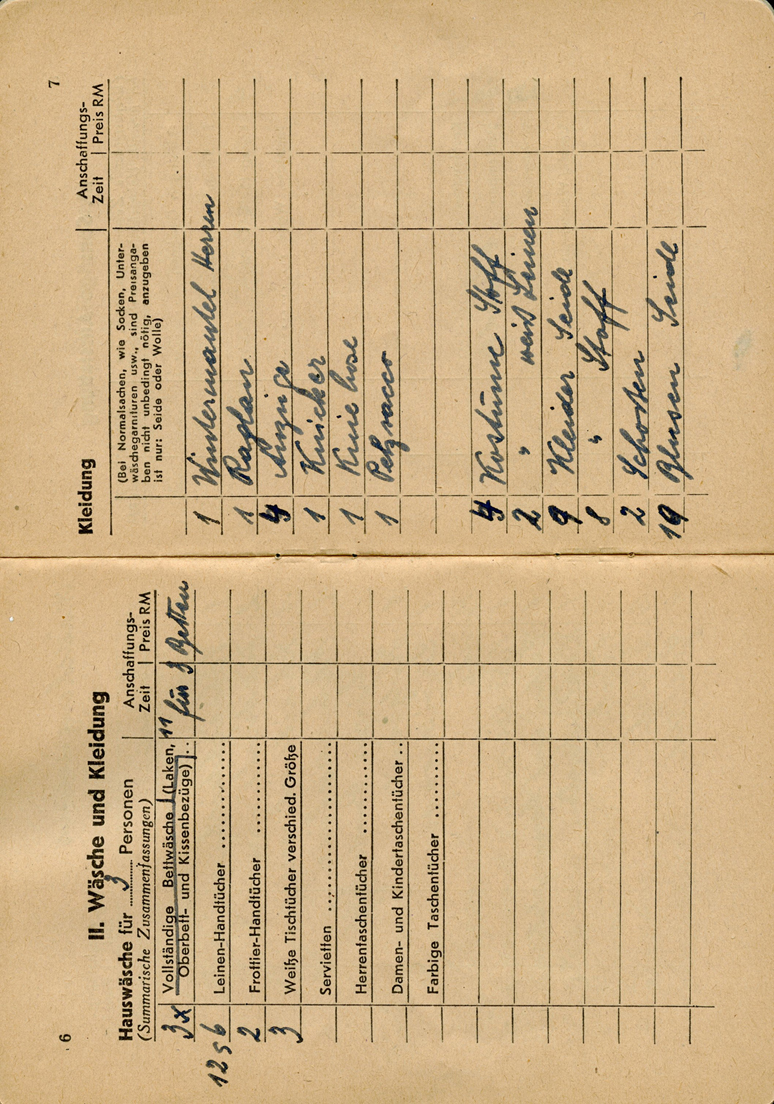 6
II. Wäsche und Kleidung
Hauswäsche für 3 Personen
(Summarische Zusammenfassungen)
Anschaffungs-
Zeit | Preis RM
3x Vollständige Bettwäsche (Laken, 11 für 3 Betten
Oberbett- und Kissenbezüge) ..
Leinen-Handtücher ............
2 Frottier-Handtücher .........
3 Weiße Tischtücher verschied. Größe
Servietten ..................
Herrentaschentücher .........
Damen- und Kindertaschentücher ..
Farbige Taschentücher .........
7
Kleidung
Anschaffungs-
Zeit | Preis RM
(Bei Normalsachen, wie Socken, Unter-
wäschegarnituren usw., sind Preisanga-
ben nicht unbedingt nötig, anzugeben
ist nur: Seide oder Wolle)
1 Wintermantel Herren
1 Raglan
4 Anzüge
1 Knicker
1 Kniehose
1
4 Kostüme Stoff
2 " weiß Leinen
9 Kleider Seide
8 " Stoff
2
19 Blusen Seide